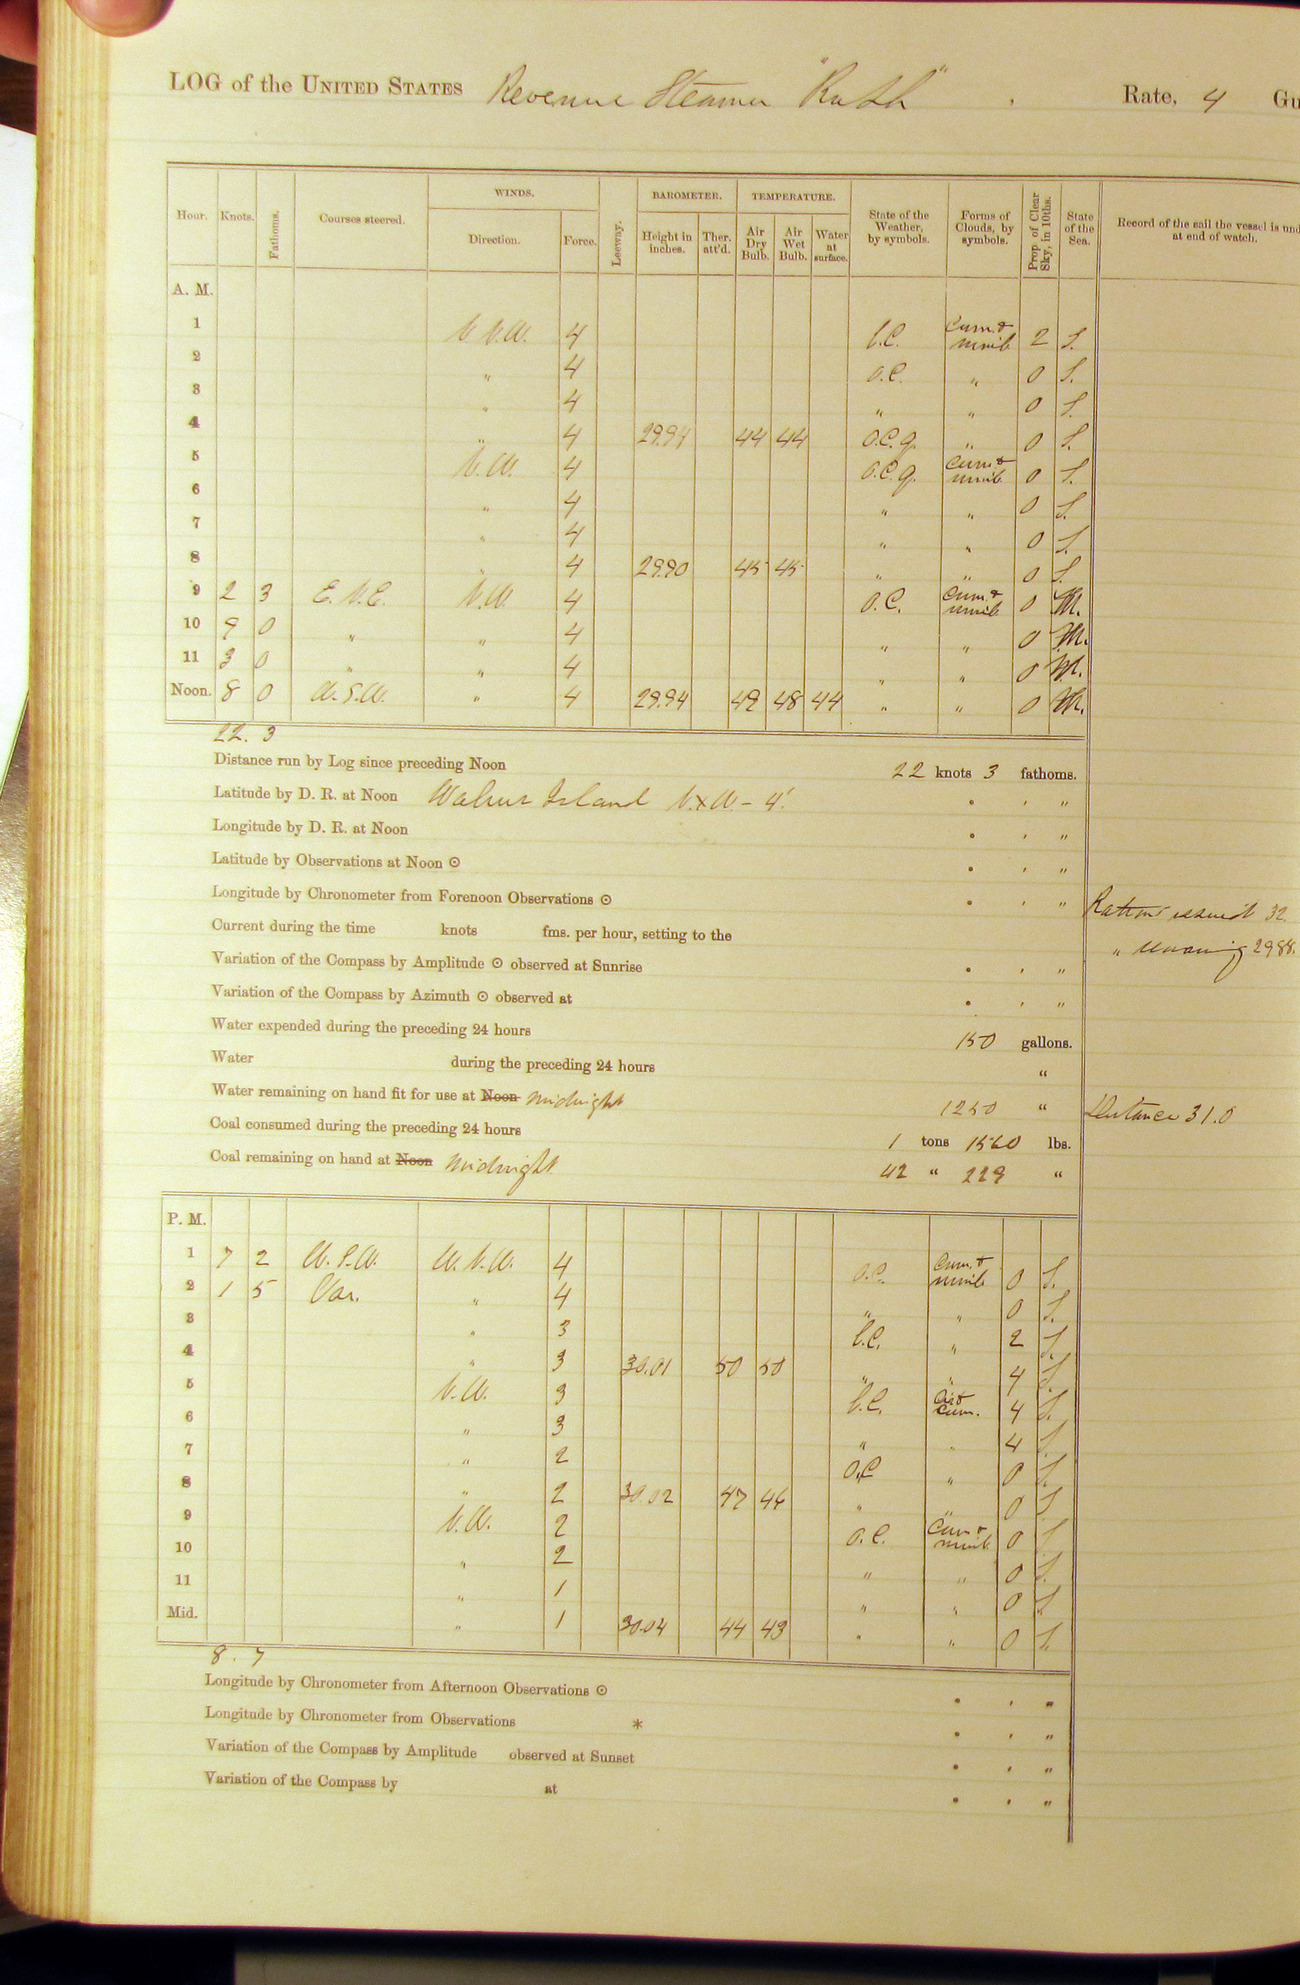 LOG of the UNITED STATES Revenue Steamer "Rush" . Rate, 4 Gu
Hour. Knots. Fathoms. Courses steered. WINDS. Direction. Force. Leeway. BAROMETER. Height in inches. Ther. att'd. TEMPERATURE. Air Dry Bulb. Air Wet Bulb. Water at surface. State of the Weather, by symbols. Forms of Clouds, by symbols. Prop. of Clear Sky, in 10ths. State of the Sea. Record of the sail the vessel is und at end of watch.
A. M.
1 N.N.W. 4 b.c. Cum. & nimb 2 S.
2 " 4 o.c. " 0 S.
3 " 4 " " 0 S.
4 " 4 29.94 44 44 o.c.q. " 0 S.
5 N.W. 4 o.c.q. Cum & nimb 0 S.
6 " 4 " " 0 S.
7 " 4 " " 0 S.
8 " 4 29.90 45 45 " " 0 S.
9 2 3 E.N.E. N.W. 4 o.c. Cum. & nimb 0 M.
10 9 0 " " 4 " " 0 M.
11 3 0 " " 4 " " 0 M.
Noon. 8 0 W.S.W. " 4 29.94 49 48 44 " " 0 M.
22. 3
Distance run by Log since preceding Noon 22 knots 3 fathoms.
Latitude by D. R. at Noon Walrus Island N.xW. - 4'. ° ' "
Longitude by D. R. at Noon ° ' "
Latitude by Observations at Noon ⊙ ° ' "
Longitude by Chronometer from Forenoon Observations ⊙ ° ' " Rations issued 32
Current during the time knots fms. per hour, setting to the " remaining 2988.
Variation of the Compass by Amplitude ⊙ observed at Sunrise ° ' "
Variation of the Compass by Azimuth ⊙ observed at ° ' "
Water expended during the preceding 24 hours 150 gallons.
Water during the preceding 24 hours "
Water remaining on hand fit for use at Noon midnight 1250 " Distance 31.0
Coal consumed during the preceding 24 hours 1 tons 1560 lbs.
Coal remaining on hand at Noon Midnight 42 " 229 "
P. M.
1 7 2 W.S.W. W.N.W. 4 o.c. Cum. & nimb 0 S.
2 1 5 Var. " 4 " " 0 S.
3 " 3 b.c. " 2 S.
4 " 3 30.01 50 50 " " 4 S.
5 N.W. 3 b.c. Cir & Cum. 4 S.
6 " 3 " " 4 S.
7 " 2 o.c " 0 S.
8 " 2 30.02 47 46 " " 0 S
9 N.W. 2 o.c. Cum & nimb 0 S.
10 " 2 " " 0 S.
11 " 1 " " 0 S.
Mid. " 1 30.04 44 43 " " 0 S.
8. 7
Longitude by Chronometer from Afternoon Observations ⊙ ° ' "
Longitude by Chronometer from Observations * ° ' "
Variation of the Compass by Amplitude observed at Sunset ° ' "
Variation of the Compass by at ° ' "